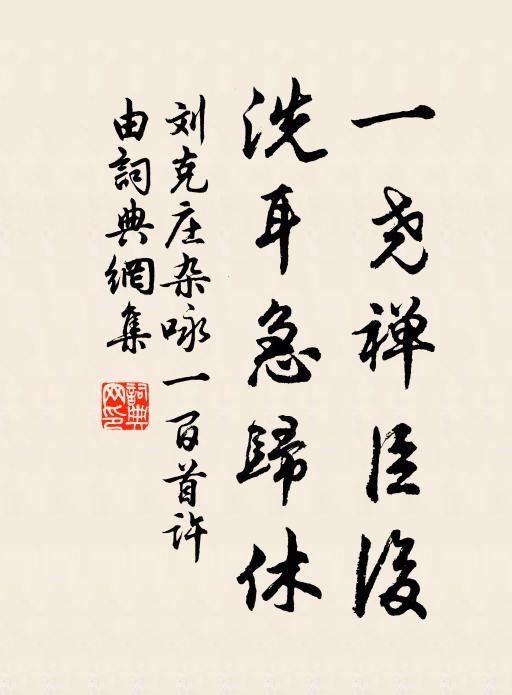 一尧禅臣後
洗耳急歸休
刘克庄杂咏一百首许
由詞典網集
詞典网印